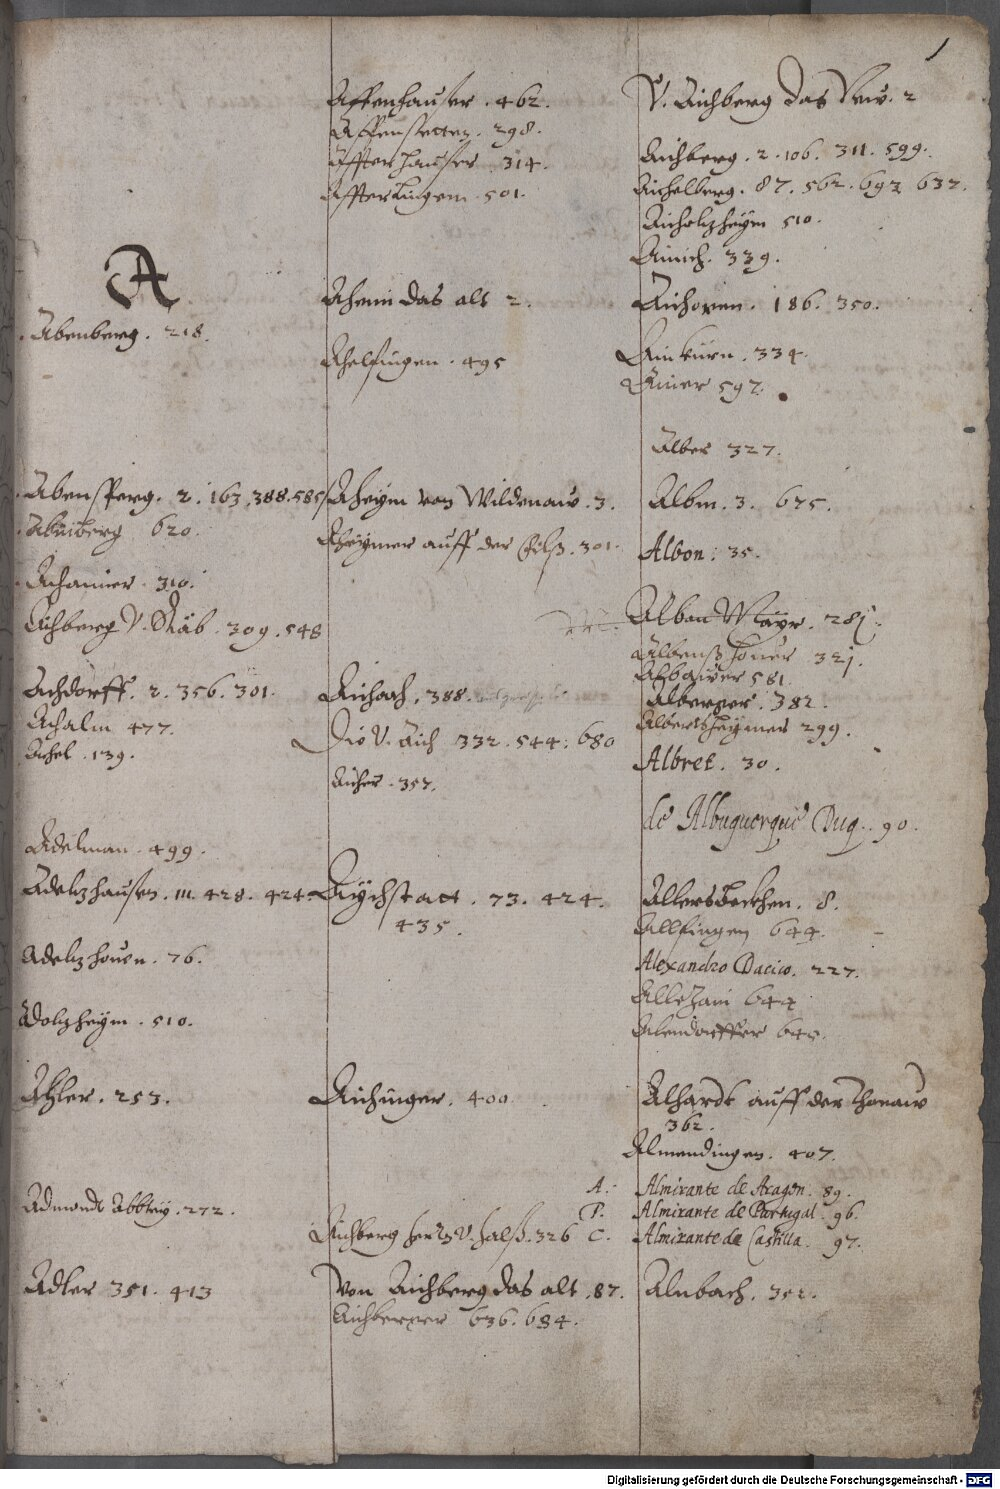 1
A
Abenberg. 218.
Abensperg. 2. 163. 388. 585
Abmberg 620.
Achamer. 310.
Aichberg V. Räb. 309. 548
Achdorff. 2. 356. 301.
Achalm 477.
Achel. 139.
Adelman. 499.
Adelzhausen. 111. 428. 424.
Adelzhoven. 76.
Adolzheÿm. 510.
Adler. 253.
Admondt Abbteÿ. 272.
Adler 351. 413
Affenhauser. 462.
Affensteten. 298.
Affterhauser. 314.
Affterlingem. 501.
Ahemi das alt 2.
Ahelfingen. 495
Aheÿm von Wildenaw. 3.
Aheÿmer auff der 301.
Aichach. 388.
Die V. Aich 332. 544. 680
Aicher. 357.
Aÿchstatt. 73. 424.
435.
Aichinger. 400
Aichberg herrn V. halß. 326
Von Aichberg das alt. 87.
Aichberger 636. 684.
V. Aichberg das New. 2
Aichberg. 2. 106. 311. 599.
Aichelberg. 87. 562. 692 632.
Aicholzheÿm 510.
Ainich. 339.
Aichoven. 186. 350.
Ainkürn. 334.
Ainer 597.
Alber 327.
Albm. 3. 675.
Albon. 35.
Alban Maÿr. 281.
Albenßhover 321.
581.
Alberger. 382.
Albertsheÿmer 299.
Albret. 30.
de Albuquerque Duq. 90.
Allersbeckhen. 8.
Allfingen 644.
Alexandro Dacico. 227.
644
Alendorffer 640.
Alhardt auff der Thonaw
362.
Almendingen. 407.
A. Almirante de Aragon. 89.
P. Almirante de Portugal. 96.
C. Almirante de Castilla. 97.
Alnbach. 352.
Digitalisierung gefördert durch die Deutsche Forschungsgemeinschaft - DFG